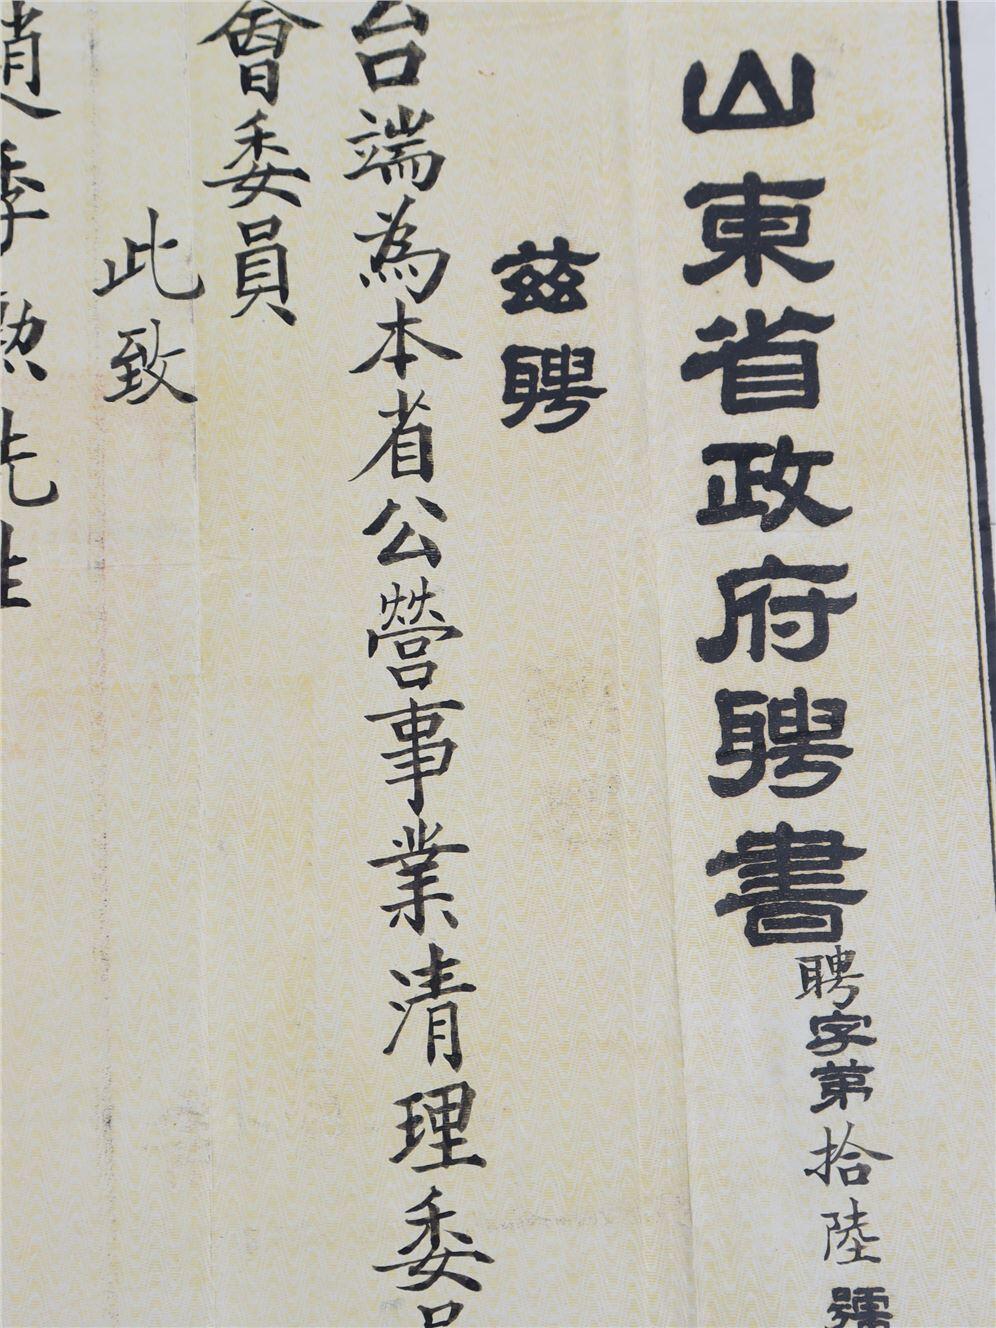 山東省政府聘書
聘字第拾陸號
兹聘
台端為本省公營事業清理委員
會委員
此致
趙季勲先生